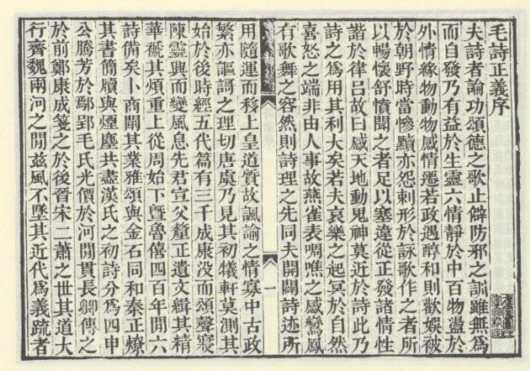 毛詩正義序
夫詩者論功頌德之歌止僻防邪之訓雖無爲
而自發乃有益於生靈六情靜於中百物盪於
外情緣物動物感情遷若政遇醇和則歡娛被
於朝野時當慘黷亦怨刺形於詠歌作之者所
以暢懷舒憤聞之者足以塞違從正發諸情性
諧於律吕故曰感天地動鬼神莫近於詩此乃
詩之爲用其利大矣若夫哀樂之起冥於自然
喜怒之端非由人事故燕雀表啁噍之感鸞鳳
有歌舞之容然則詩理之先同夫開闢詩迹所
一
用隨運而移上皇道質故諷諭之情寡中古政
繁亦謳謌之理切唐虞乃見其初犧軒莫測其
始於後時經五代篇有三千成康没而頌聲寢
陳靈興而變風息先君宣父釐正遺文緝其精
華褫其煩重上從周始下暨魯僖四百年閒六
詩備矣卜商闡其業雅頌與金石同和秦正燎
其書簡牘與煙塵共盡漢氏之初詩分爲四申
公騰芳於鄢郢毛氏光價於河閒貫長卿傳之
於前鄭康成箋之於後晉宋二蕭之世其道大
行齊魏兩河之閒兹風不墜其近代爲義疏者